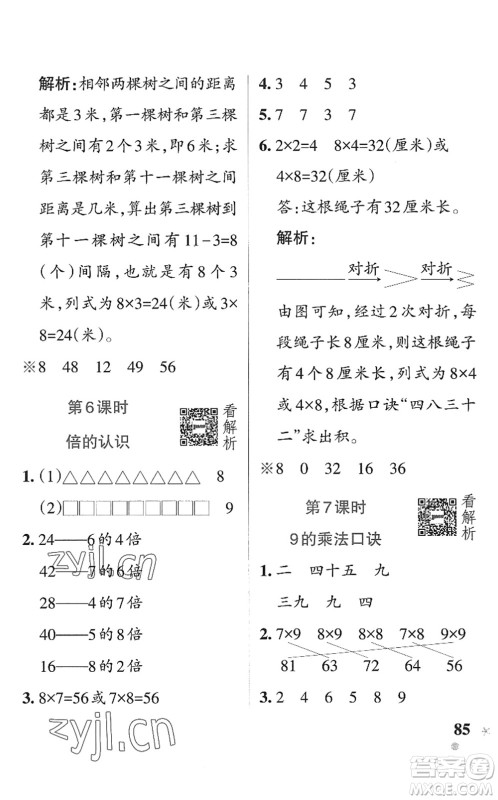 解析:相邻两棵树之间的距离
都是3米,第一棵树和第三棵
树之间有2个3米,即6米;求
第三棵树和第十一棵树之间
距离是几米,算出第三棵树到
第十一棵树之间有11-3=8
(个)间隔,也就是有8个3
米,列式为8×3=24(米)或3×
8=24(米)。
※8 48 12 49 56
第6课时
倍的认识
看解析
1.(1)△△△△△△△△ 8
(2)□□□□□□□□□ 9
2. 24——6的4倍
42——7的6倍
28——4的7倍
40——5的8倍
16——8的2倍
3. 8×7=56或7×8=56
4. 3 4 5 3
5. 7 7 3 7
6. 2×2=4 8×4=32(厘米)或
4×8=32(厘米)
答:这根绳子有32厘米长。
解析:
对折 对折
由图可知,经过2次对折,每
段绳子长8厘米,这根绳子长
4个8厘米,列式为8×4或
4×8,根据口诀“四八三十
二”求出积。
※8 0 32 16 36
第7课时
9的乘法口诀
看解析
1. 二 四十五 九
三九 九 四
2. 7×9 8×9 8×8 7×8 9×9
81 63 72 64 56
3. 2 4 5 6 8 9
85
zyjl.cn
zyjl.cn
答案圈
MXQE.COM